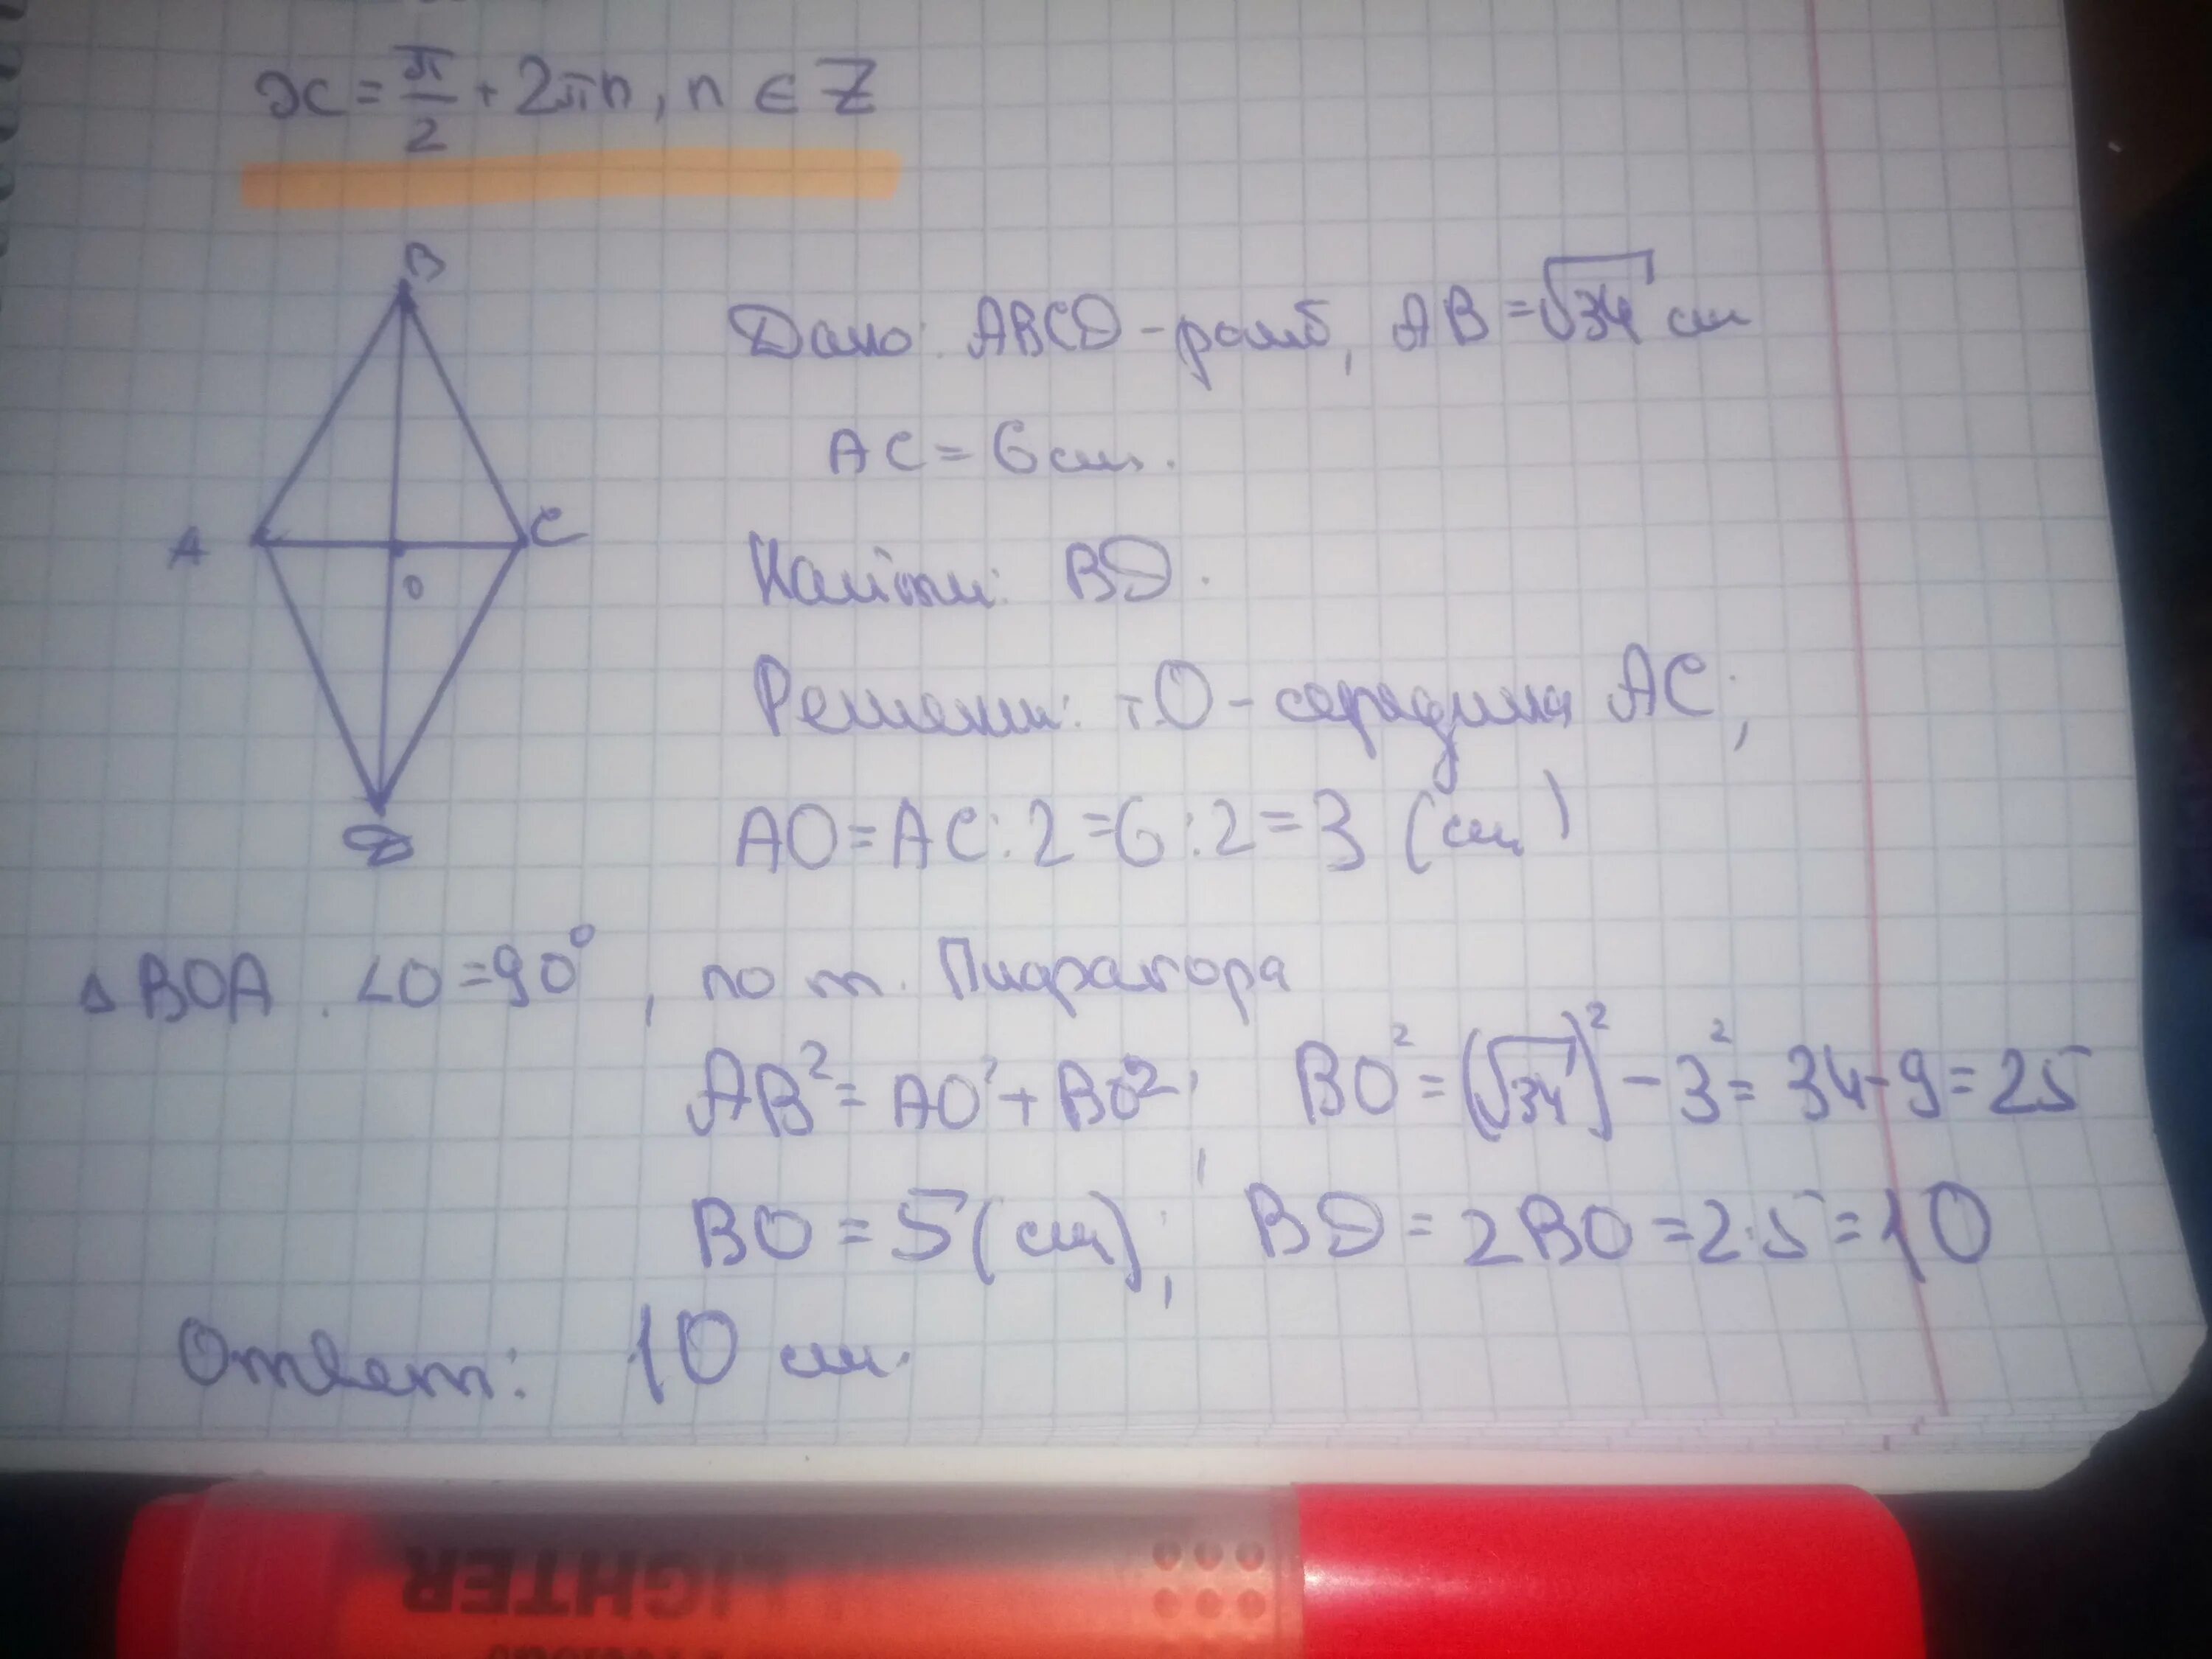 x = π/2 + 2πn, n ∈ Z
B
Дано: ABCD - ромб, AB = √34 см
AC = 6 см.
A
C
O
Найти: BD.
Решени: т.O - середина AC;
AO = AC : 2 = 6 : 2 = 3 (см)
D
△ BOA. ∠O = 90°, по т. Пифагора
AB² = AO² + BO²; BO² = (√34)² - 3² = 34 - 9 = 25
BO = 5 (см); BD = 2BO = 2·5 = 10
Ответ: 10 см.
LIGHTER